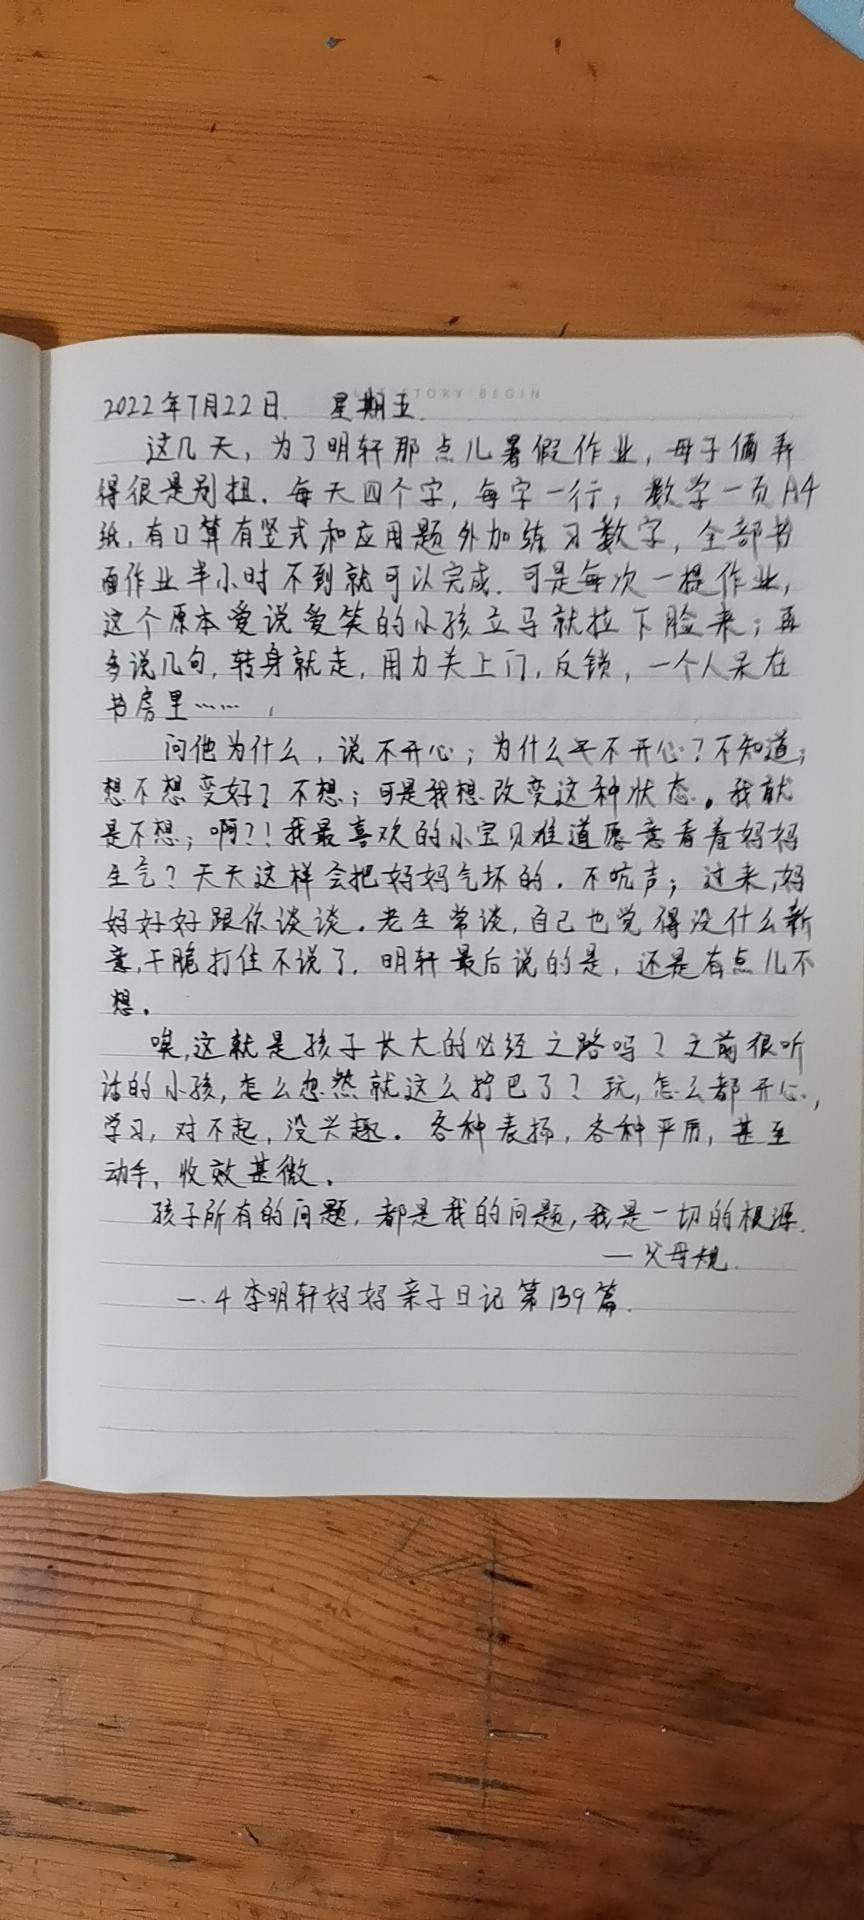 STORY BEGIN
2022年7月22日. 星期五.
这几天，为了明轩那点儿暑假作业，母子俩弄
得很是别扭.每天四个字，每字一行；数学一页A4
纸，有口算有竖式和应用题外加练习数字，全部书
面作业半小时不到就可以完成.可是每次一提作业，
这个原本爱说爱笑的小孩立马就拉下脸来；再
多说几句，转身就走，用力关上门，反锁，一个人呆在
书房里……，
问他为什么，说不开心；为什么不开心？不知道；
想不想变好？不想；可是我想改变这种状态。我就
是不想；啊？！我最喜欢的小宝贝难道愿意看着妈妈
生气？天天这样会把妈妈气坏的.不吭声；过来，妈
妈好好跟你谈谈.老生常谈，自己也觉得没什么新
意，干脆打住不说了.明轩最后说的是，还是有点儿不
想。
唉，这就是孩子长大的必经之路吗？之前很听
话的小孩，怎么忽然就这么拧巴了？玩，怎么都开心，
学习，对不起，没兴趣.各种表扬，各种严厉，甚至
动手，收效甚微.
孩子所有的问题，都是我的问题，我是一切的根源.
—父母规.
一.4李明轩妈妈亲子日记第139篇.